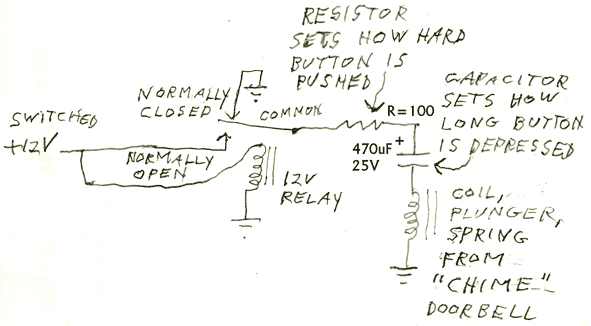 RESISTOR
SETS HOW HARD
BUTTON IS
PUSHED
NORMALLY
CLOSED
CAPACITOR
SETS HOW
LONG BUTTON
IS DEPRESSED
SWITCHED
+12V
COMMON
R=100
NORMALLY
OPEN
470uF +
25V
12V
RELAY
COIL,
PLUNGER,
SPRING
FROM
"CHIME"
DOORBELL